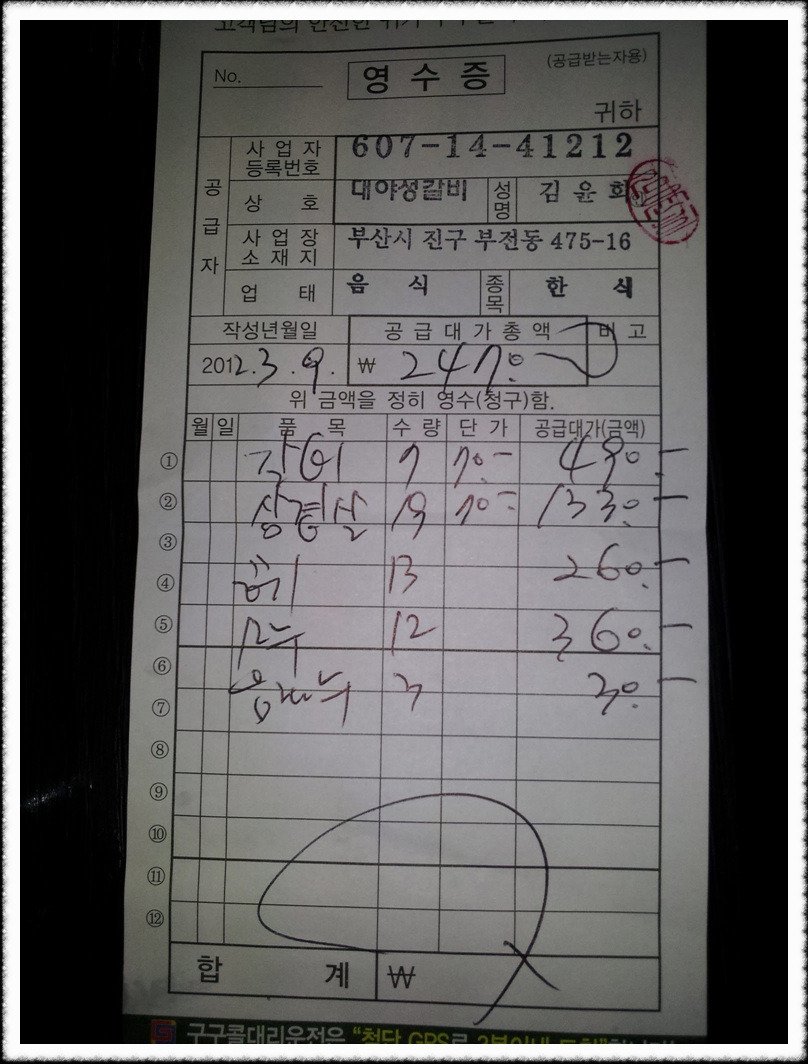 고객님의 안전한 귀가
No.
영 수 증
(공급받는자용)
귀하
공급자
사업자등록번호 607-14-41212
상 호 대야성갈비 성명 김 윤 희
사업장소재지 부산시 진구 부전동 475-16
업 태 음 식 종목 한 식
작성년월일 공급대가총액 비 고
2012.3.9. ₩ 2470.-
위 금액을 정히 영수(청구)함.
월 일 품 목 수 량 단 가 공급대가(금액)
① 갈비 7 70.- 490.-
② 삼겹살 19 70.- 1330.-
③
④ 공기 13 260.-
⑤ 소주 12 360.-
⑥
⑦ 음료수 3 30.-
⑧
⑨
⑩
⑪
⑫
합 계 ₩
구구콜대리운전은 "첨단 GPS로